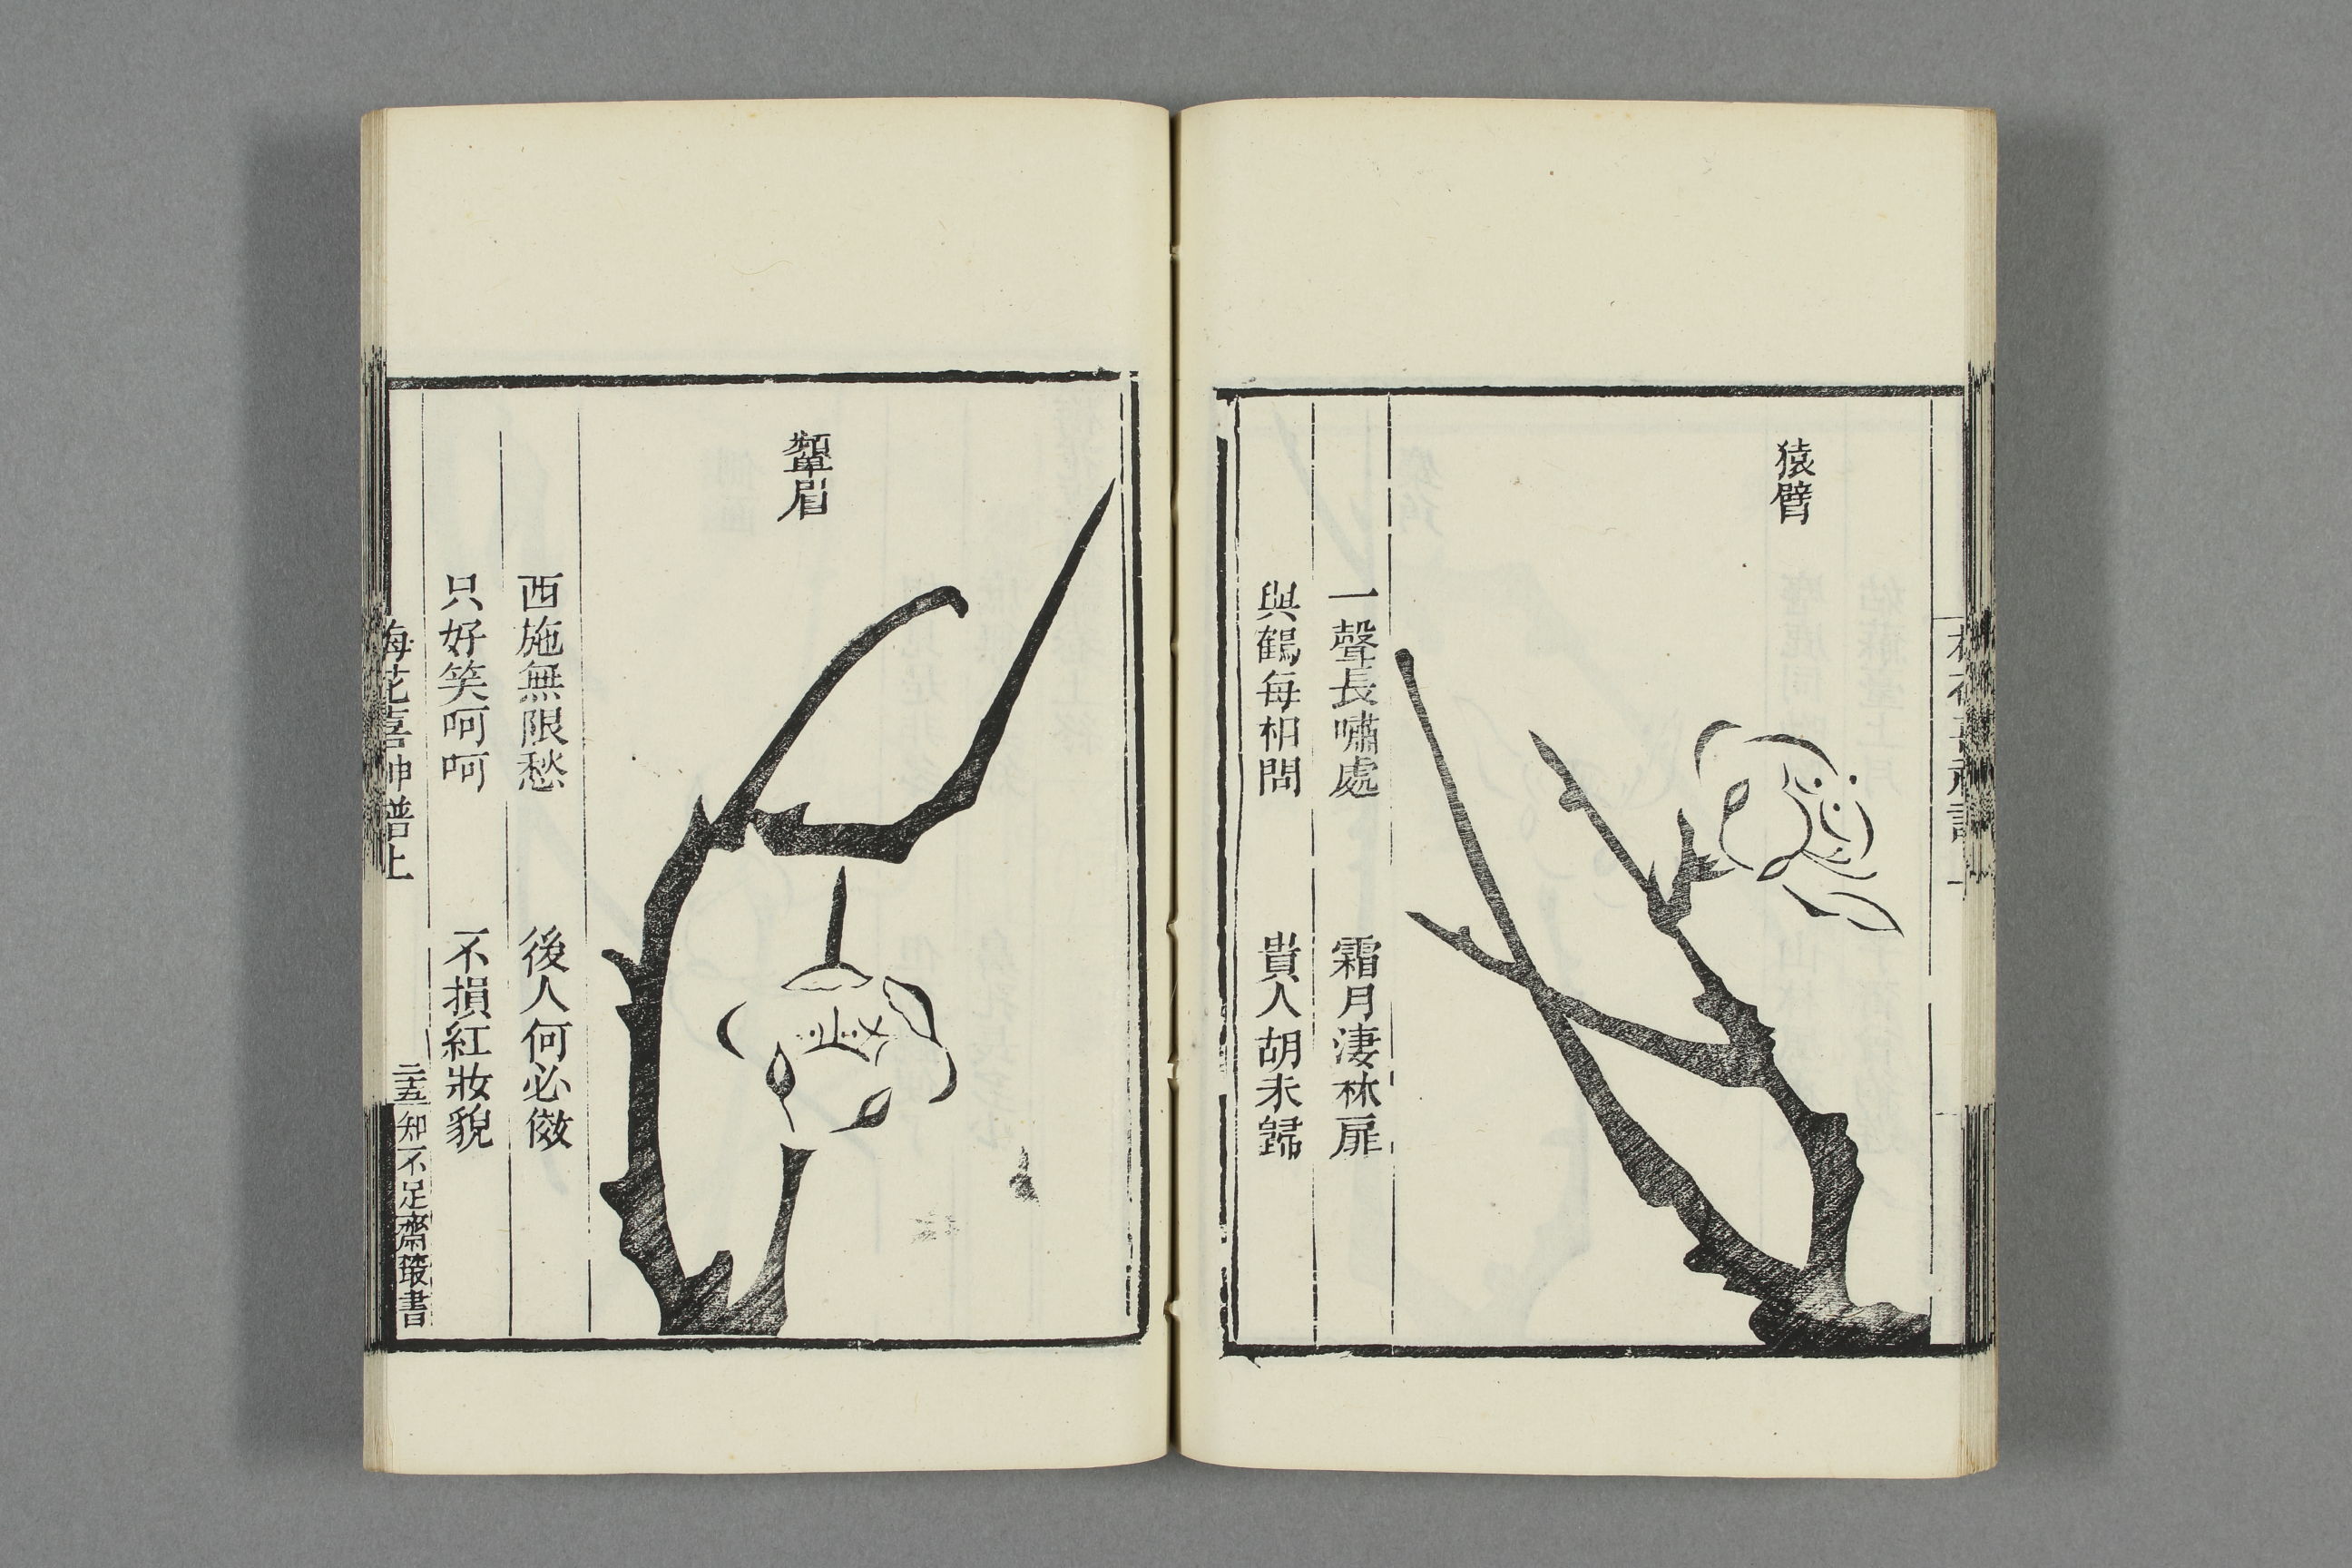 猿臂
一聲長嘯處　霜月淒林扉
與鶴每相問　貴人胡未歸
顰眉
西施無限愁　後人何必傚
只好笑呵呵　不損紅妝貌
梅花喜神譜上　二五　知不足齋叢書